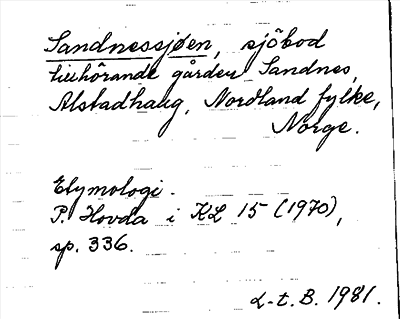 Sandnessjøen, sjöbod
tillhörande gården Sandnes,
Alstadhaug, Nordland fylke,
Norge.
Etymologi.
P. Hovda i KL 15 (1970),
sp. 336.
L-t. B. 1981.